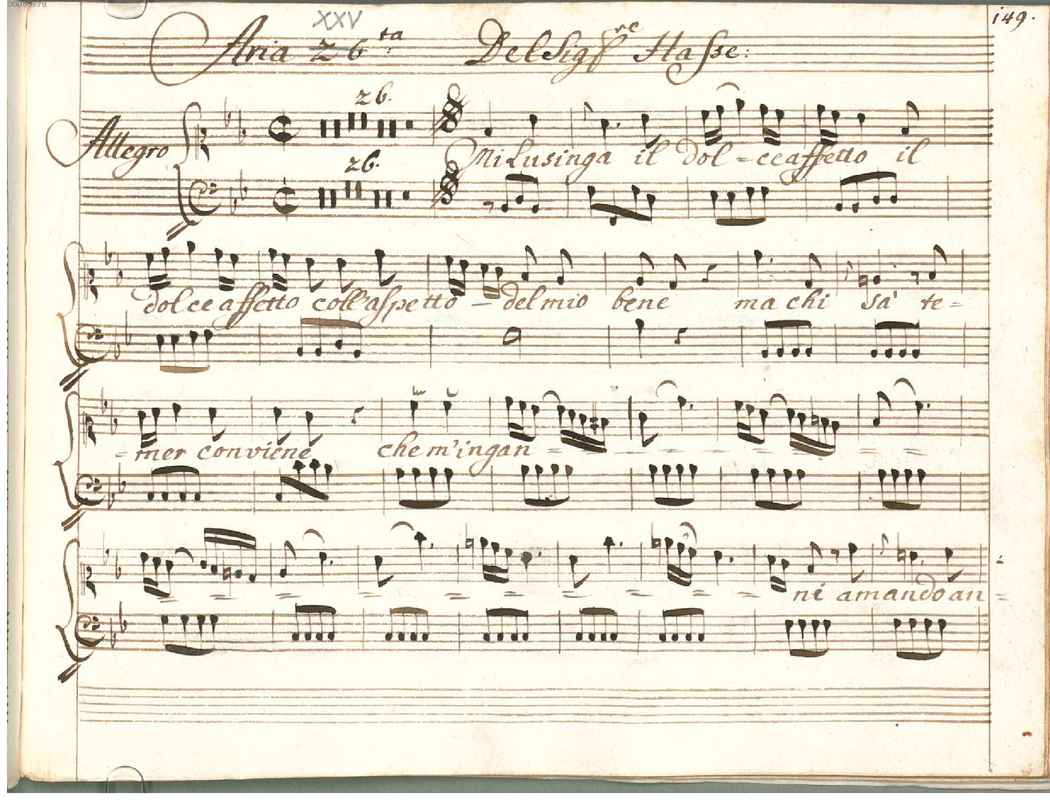 XXV
149.
Aria 26.ta Del Sig.re Hasse:
26.
Allegro
Mi lusinga il dol - ce affetto il
26.
dolce affetto coll'aspetto - del mio bene ma chi sà te =
= mer conviene che m'ingan = = = = = =
= = = = = = = = ni amando an =